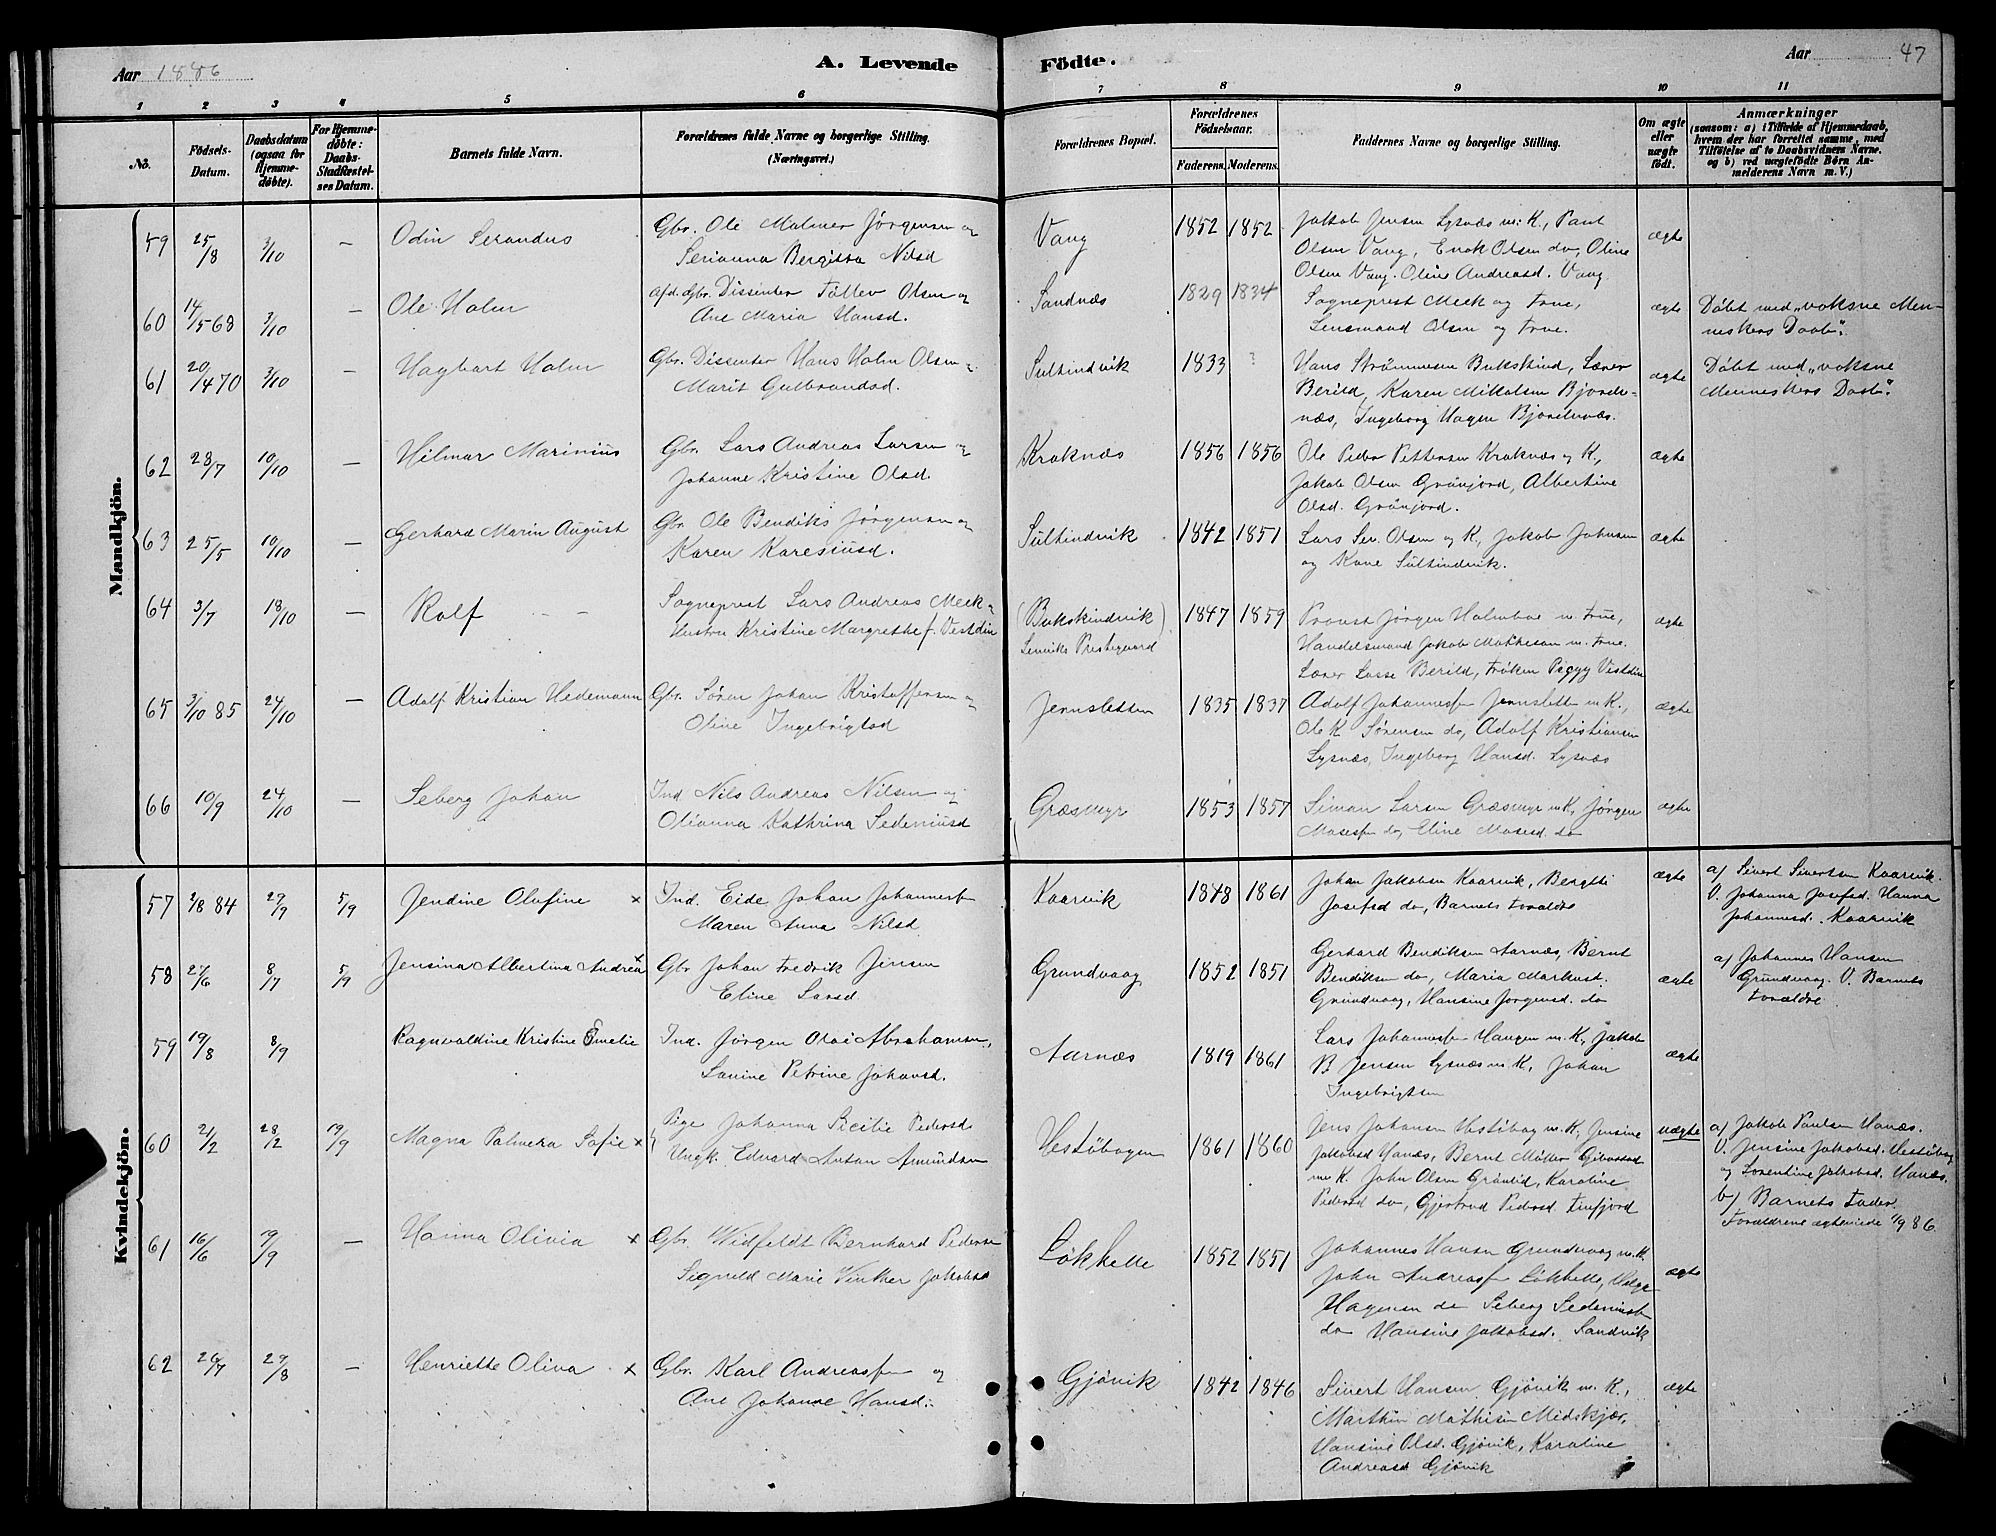 Aar 1886
A. Levende
Födte.
Aar
47
1 2 3 4 5 6 7 8 9 10 11
No.
Födsels-
Datum.
Daabsdatum
(ogsaa for
Hjemme-
döbte).
For Hjemme-
döbte:
Daabs-
Stadfæstel-
ses Datum.
Barnets fulde Navn.
Forældrenes fulde Navne og borgerlige Stilling.
(Næringsvei.)
Forældrenes Bopæl.
Forældrenes
Födselsaar.
Faderens. Moderens.
Faddernes Navne og borgerlige Stilling.
Om ægte
eller
uægte
födt.
Anmærkninger
(saasom: a) i Tilfælde af Hjemmedaab,
hvem der har forrettet samme, med
Tilföielse af to Daabsvidners Navne.
og b) ved uægtefödte Börn An-
melderens Navn m. V.)
Mandkjön.
59 25/8 3/10 — Odin Serandus
Gbr. Ole Molner Jørgensen og
Serianna Bergitta Nilsd
Vang 1852 1852
Jakob Jensen Lysnæs m: K., Paul
Olsen Vang, Enok Olsen do, Oline
Olsen Vang. Oline Andreasd. Vang.
ægte
60 14/5-68 3/10 — Ole Holm
Afd. Gbr. Dissenter Tollev Olsen og
Ane Maria Hansd.
Sandnæs 1829 1834
Sogneprest Meek og Frue,
Lensmand Olsen og Frue.
ægte
Døbt med „voksne Men-
neskers Daab".
61 20/4 70 3/10 — Hagbart Holm
Gbr. Dissenter Hans Holm Olsen
Marit Gulbrandsd.
Sultindvik 1833 ?
Hans Strømmesen Bukskind, Lærer
Berild, Karen Mikalsen Bjorde-
næs, Ingeborg Hagen Bjordenæs.
ægte
Døbt med „voksne
Menneskers Daab".
62 28/7 10/10 — Hilmar Marinius
Gbr. Lars Andreas Larsen og
Johanne Kristine Olsd.
Kraknæs 1856 1856
Ole Peder Pettersen Kraknæs og K.,
Jakob Olsen Grönjord, Albertine
Olsd. Grönjord.
ægte
63 25/5 10/10 — Gerhard Marin August
Gbr. Ole Bendiks Jørgensen og
Karen Karesiusd.
Sultindvik 1842 1851
Lars Ser. Olsen og K., Jakob Johnsen
og Kone Sultindvik.
ægte
64 3/7 18/10 — Rolf
Sogneprest Lars Andreas Meek
Hustru Kristine Margrethe f. Vestdin
(Bukskindvik)
Lenviks Prestegaard
1847 1859
Provst Jørgen Holmboe m. Frue,
Handelsmand Jakob Mathesen m. Frue.
Lærer Lasse Berild, Frøken Peggy Vestdin
ægte
65 3/10 85 24/10 — Adolf Kristian Hedemann
Gbr. Sören Johan Kristoffersen og
Oline Ingebrigtsd
Jernsletten 1835 1837
Adolf Johannesen Jernslett m K.,
Ole K Sørensen do, Adolf Kristiansen
Lysnæs, Ingeborg Hansd. Lysnæs
ægte
66 10/9 24/10 — Seberg Johan
Ind. Nils Andreas Nilsen og
Olianna Kathrina Sedeniusd
Græsmyr 1853 1857
Simon Larsen Græsmyr m K, Jørgen
Mosesen do, Eline Mosesd. do
ægte
Kvindekjön.
57 2/8 84 29/9 5/9 Jendine Olufine x
Ind. Eide Johan Johannesen
Maren Anna Nilsd
Kaarvik 1848 1861
Johan Jakobsen Kaarvik, Bergtte
Josefsd do, Barnets Forældre
ægte
a/ Sivert Sivertsen Kaarvik.
V. Johanna Josefsd. Hanna
Johannesd. Kaarvik
58 27/6 8/7 5/9 Jensina Albertina Andrea x
Gbr Johan Fredrik Jensen
Eline Larsd.
Grundvaag 1852 1851
Gerhard Bendiksen Aarnæs, Bernt
Bendiksen do, Maria Markust.
Grundvaag, Hansine Jorgensd. do
ægte
a/ Johannes Hansen
Grundvaag. V. Barnets
Forældre
59 19/8 8/9 Ragnvaldine Kristine Emelie
Ind. Jørgen Olai Abrahamsen,
Lanine Petrine Johansd.
Aarnæs 1819 1861
Lars Johannesen Haugen m. K, Jakob
B Jensen Lysnæs m. K, Johan
Ingebrigtsen
ægte
60 21/2 28/2 19/9 Magna Palmera Sofie x
Pige Johanna Secilie Pedersd
Ungk. Edvard Antan Amundsen
Vestöbogen 1861 1860
Jens Johansen Vestöbog m. K, Jensine
Jakobsd Hanæs, Bernt Möller
m. K. John Olsen Grönlid, Karoline
Pedersd do, Gjertrud Pedersd. Finfjord
uægte
a/ Jakob Paulsen Hanæs.
V. Jensine Jakobsd. Vestöbog
og Lorentine Jakobsd. Hanæs.
b/ Barnets Fader.
Forældrene ægteviede 1/9 86.
61 16/6 19/9 — Hanna Olivia x
Gbr. Widfeldt Bernhard Pedersen
Signild Marie Vinther Jakobsd
Løkhelle 1852 1851
Johannes Hansen Grundvaag m. K.
John Andreasen Løkhelle, Helge
Hagensen do Seberg Sedeniusen
do Hansine Jakobsd. Sandvik
ægte
62 26/7 29/8 — Henriette Oliva x
Gbr. Karl Andreasen og
Ane Johanne Hansd.
Gjövik 1842 1846
Sivert Hansen Gjövik m. K.,
Marthin Mathisen Midskjær,
Hansine Olsd. Gjövik, Karoline
Andreasd Gjövik
ægte